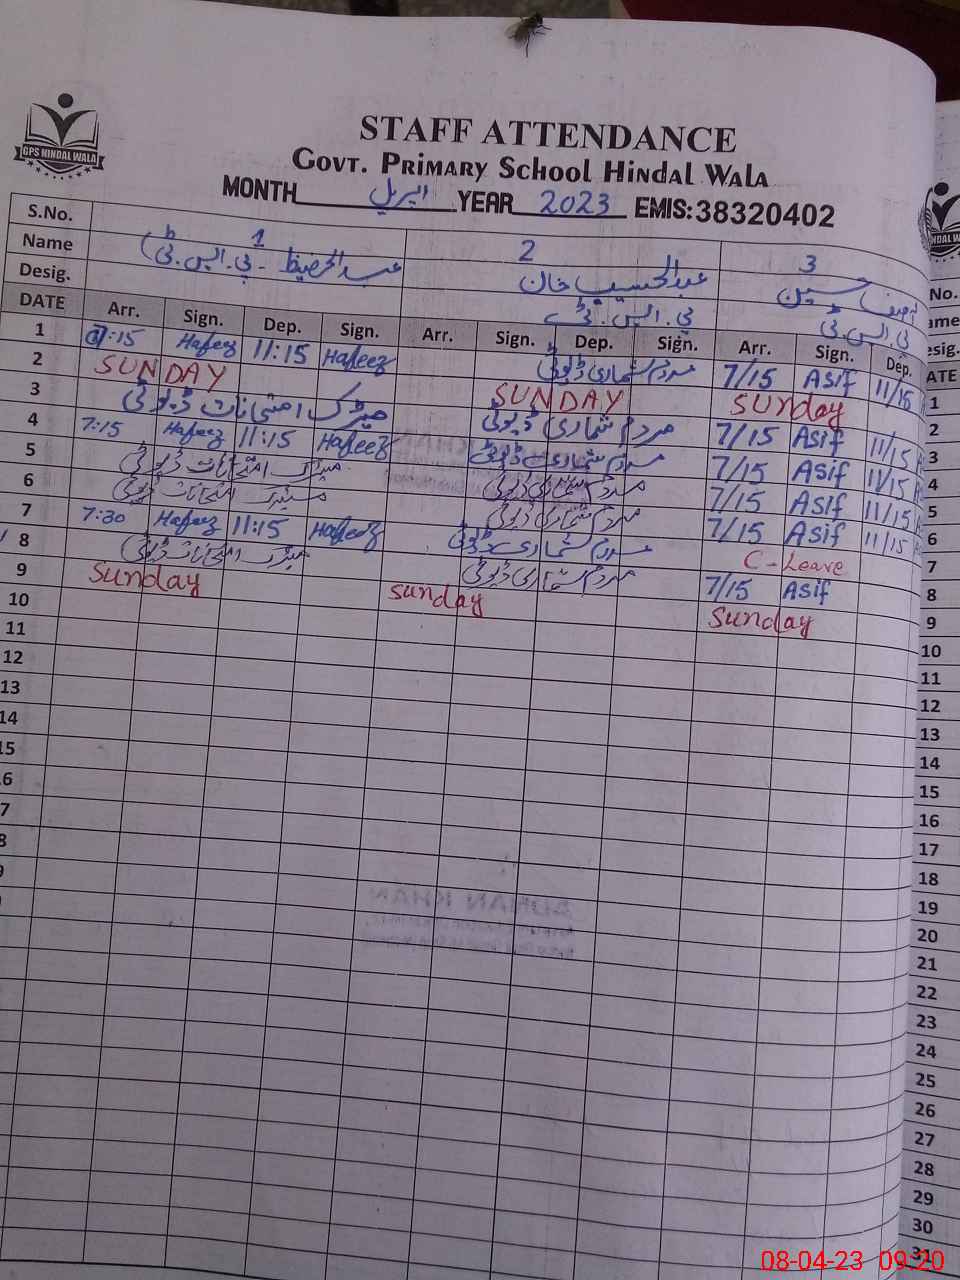 GPS HINDAL WALA
STAFF ATTENDANCE
GOVT. PRIMARY SCHOOL HINDAL WALA
MONTH اپریل YEAR 2023 EMIS:38320402
S.No. 1 2 3
Name عبدالحفیظ عبدالحسیب خان آصف حسین
Desig. پی.ایس.ٹی پی.ایس.ٹی پی.ایس.ٹی
DATE Arr. Sign. Dep. Sign. Arr. Sign. Dep. Sign. Arr. Sign. Dep.
1 7:15 Hafeez 11:15 Hafeez مردم شماری ڈیوٹی 7/15 Asif 11/15
2 SUNDAY SUNDAY Sunday
3 میٹرک امتحانات ڈیوٹی مردم شماری ڈیوٹی 7/15 Asif 11/15
4 7:15 Hafeez 11:15 Hafeez مردم شماری ڈیوٹی 7/15 Asif 11/15
5 میٹرک امتحانات ڈیوٹی مردم شماری ڈیوٹی 7/15 Asif 11/15
6 میٹرک امتحانات ڈیوٹی مردم شماری ڈیوٹی 7/15 Asif 11/15
7 7:30 Hafeez 11:15 Hafeez مردم شماری ڈیوٹی C-Leave
8 میٹرک امتحانات ڈیوٹی مردم شماری ڈیوٹی 7/15 Asif
9 Sunday Sunday Sunday
10
11
12
13
14
15
16
17
18
19
20
21
22
23
24
25
26
27
28
29
30
31
08-04-23 09:20